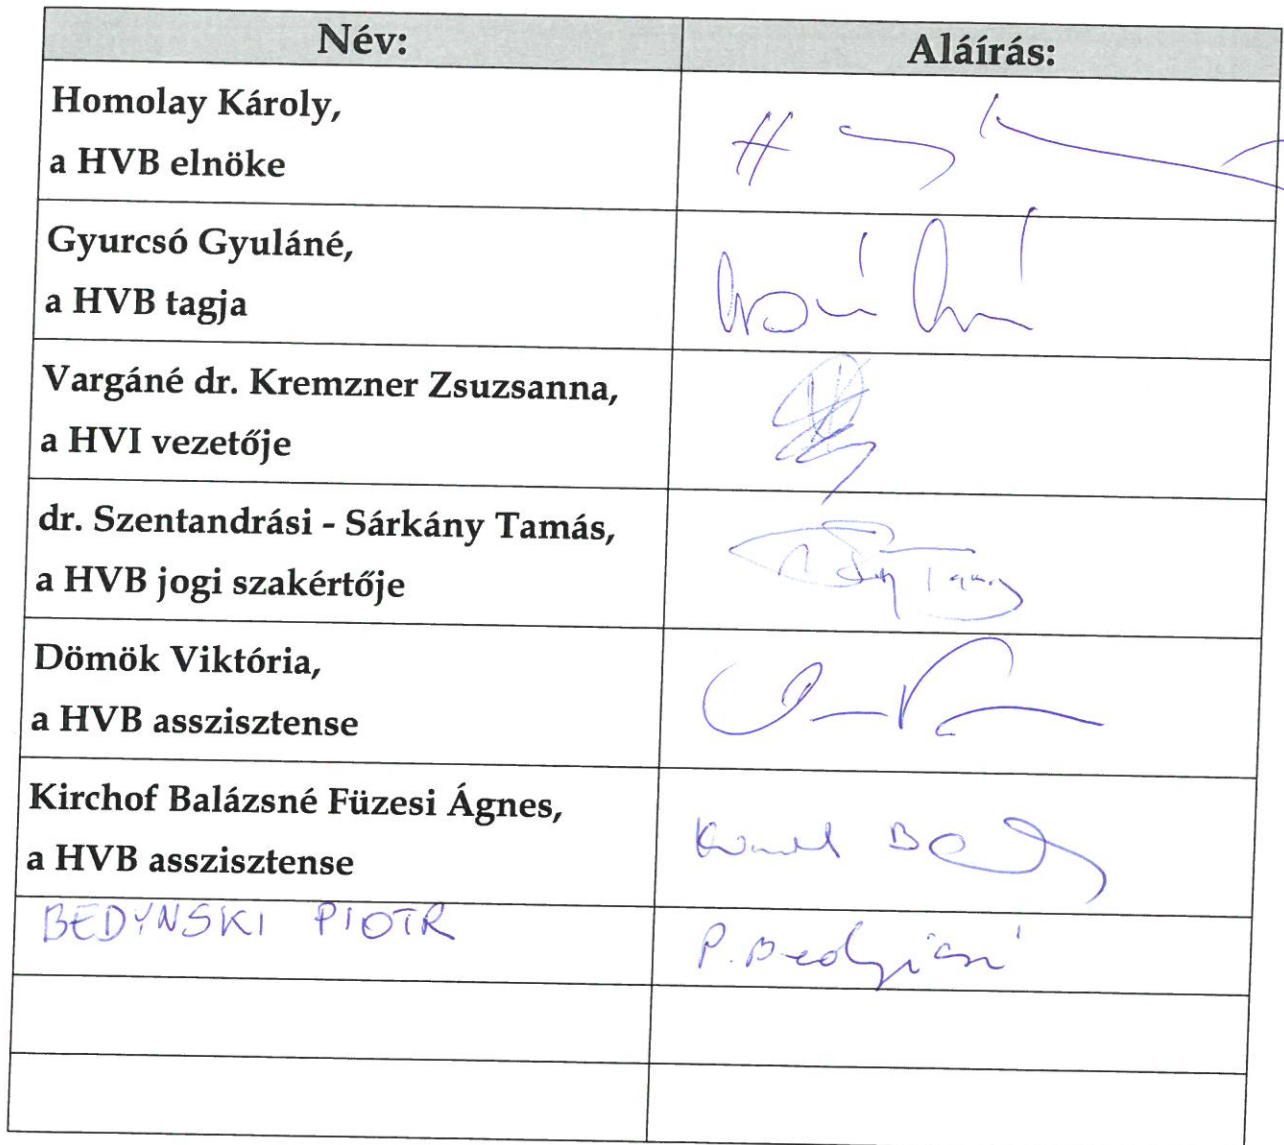 Név: Aláírás:
Homolay Károly,
a HVB elnöke
Gyurcsó Gyuláné,
a HVB tagja
Vargáné dr. Kremzner Zsuzsanna,
a HVI vezetője
dr. Szentandrási - Sárkány Tamás,
a HVB jogi szakértője
Dömök Viktória,
a HVB asszisztense
Kirchof Balázsné Füzesi Ágnes,
a HVB asszisztense
BEDYNSKI PIOTR